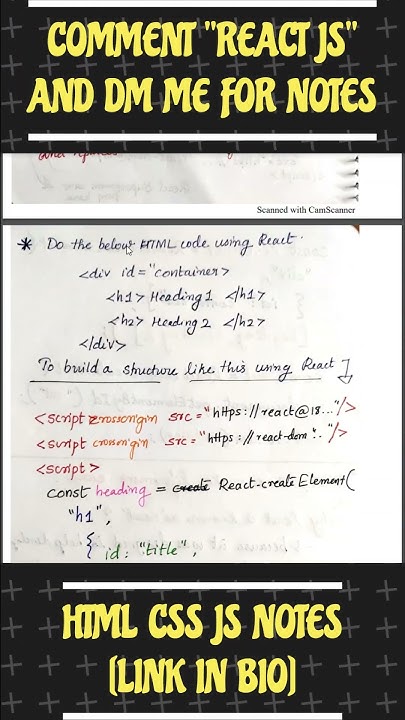 COMMENT "REACT JS"
AND DM ME FOR NOTES
Scanned with CamScanner
* Do the below HTML code using React.
<div id="container>
<h1> Heading 1 </h1>
<h2> Heading 2 </h2>
</div>
To build a structure like this using React
<script crossorigin src="https://react@18..."/>
<script crossorigin src="https://react-dom "..."/>
<script>
const heading = create React-createElement(
"h1",
{ id: "title",
HTML CSS JS NOTES
(LINK IN BIO)